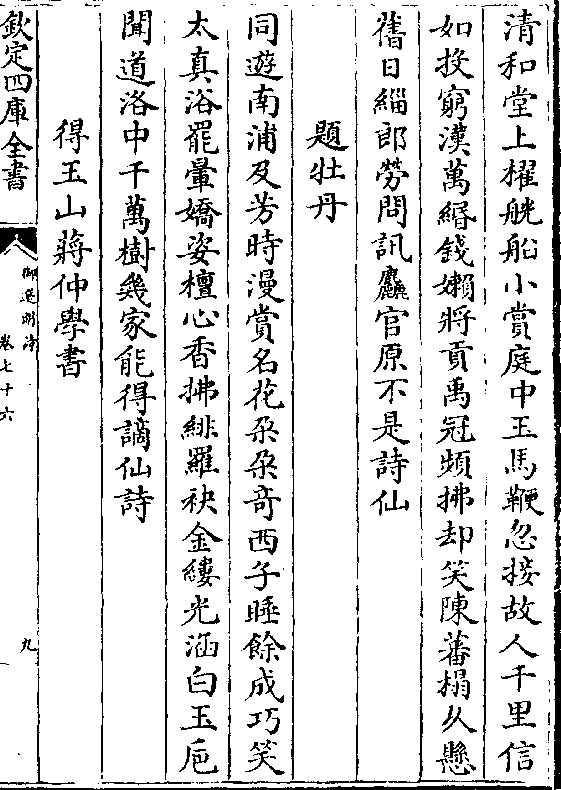 清和堂上櫂觥船小賞庭中玉馬鞭忽接故人千里信
如投窮漢萬緡錢嬾將貢禹冠頻拂却笑陳蕃榻久懸
舊日緇郎勞問訊麤官原不是詩仙
題牡丹
同遊南浦及芳時漫賞名花朶朶竒西子睡餘成巧笑
太真浴罷暈嬌姿檀心香拂緋羅袂金縷光涵白玉巵
聞道洛中千萬樹幾家能得謫仙詩
得玉山蔣仲學書
欽定四庫全書
御選明詩
卷七十六
九